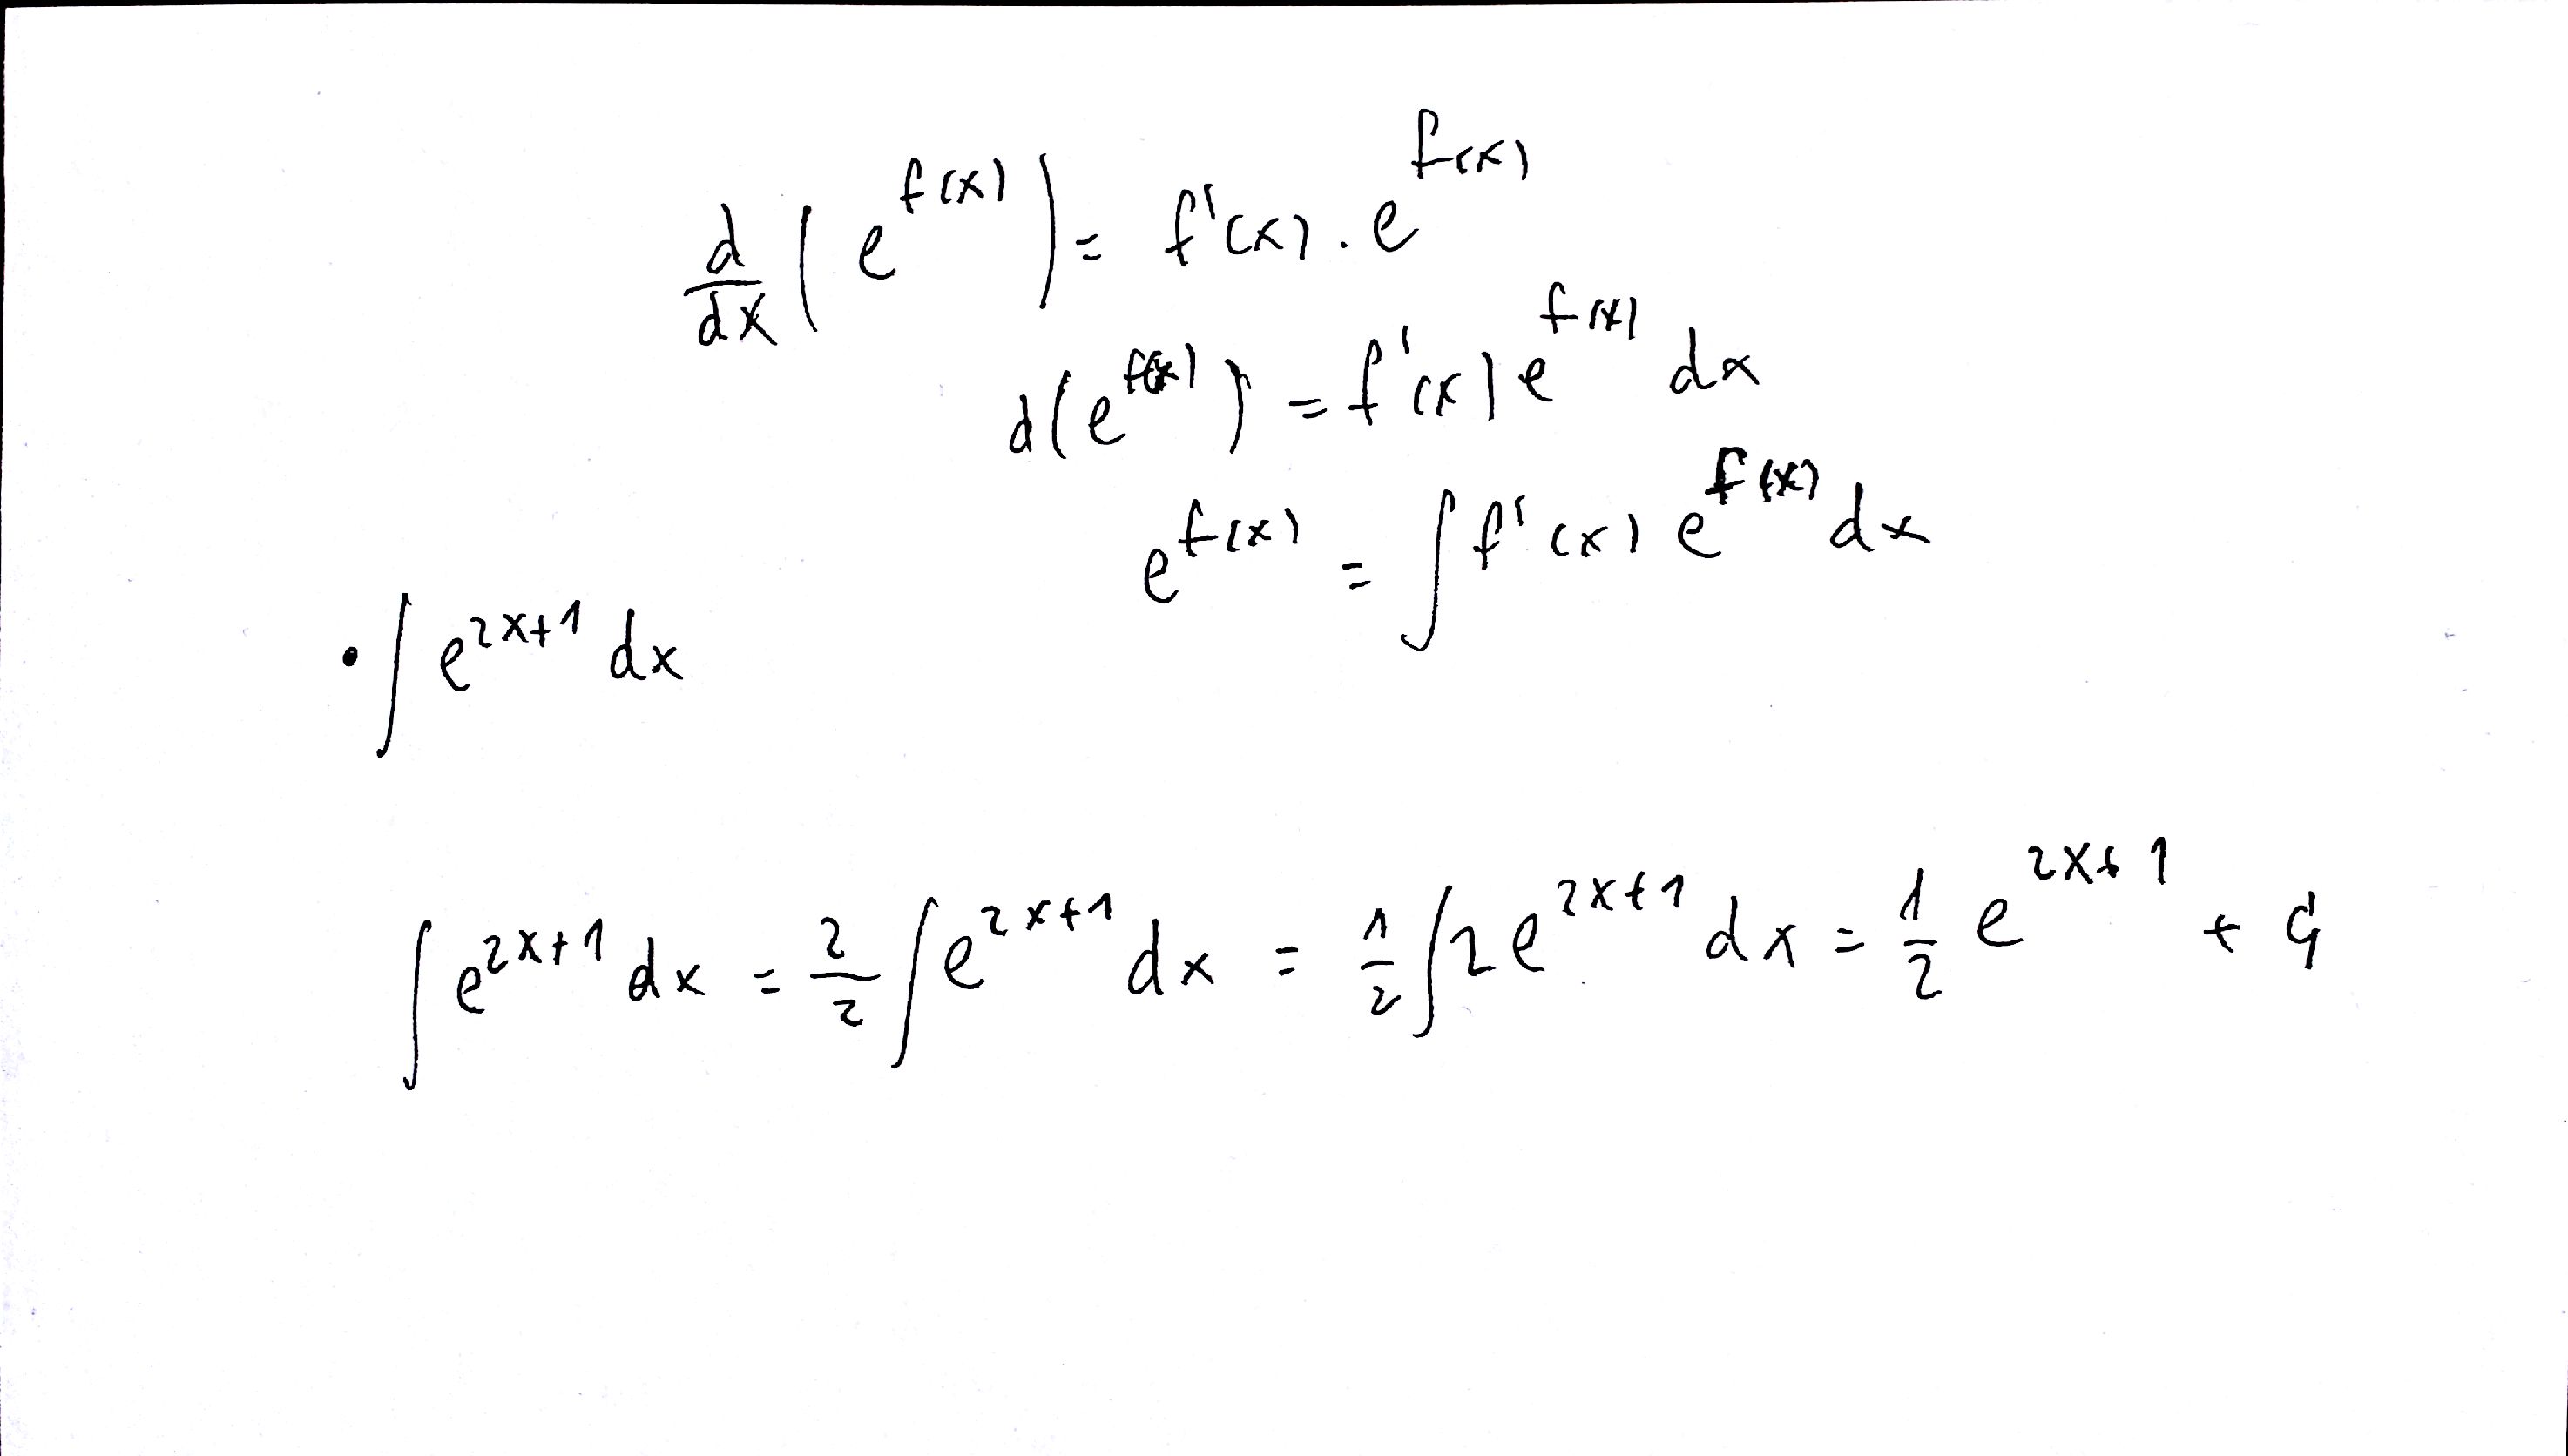 d/dx (e^f(x)) = f'(x) . e^f(x)
d(e^f(x)) = f'(x) e^f(x) dx
e^f(x) = ∫ f'(x) e^f(x) dx
• ∫ e^2x+1 dx
∫ e^2x+1 dx = 2/2 ∫ e^2x+1 dx = 1/2 ∫ 2 e^2x+1 dx = 1/2 e^2x+1 +